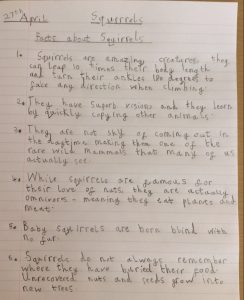 27th April
Squirrels
Facts about Squirrels
1. Squirrels are amazing creatures they
can leap 10 times their body length
and turn their ankles 180 degrees to
face any direction when climbing.
2. They have superb vision and they learn
by quickly copying other animals.
3. They are not shy of coming out in
the daytime, making them one of the
rare wild mammals that many of us
actually see.
4. While squirrels are famous for
their love of nuts, they are actually
omnivors - meaning they eat plants and
meat.
5. Baby squirrels are born blind with
no fur.
6. Squirrels do not always remember
where they have buried their food.
Unrecovered nuts and seeds grow into
new trees.